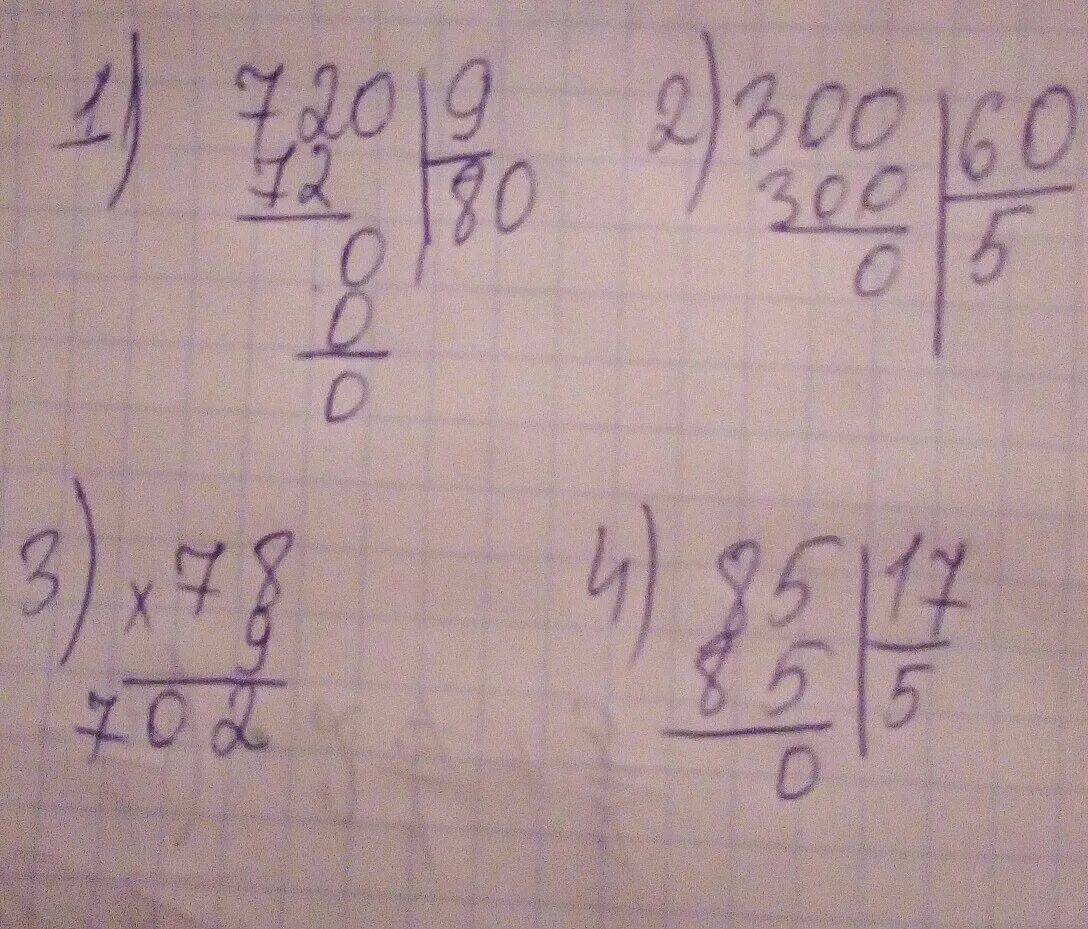 1) 720 | 9
72 | 80
0
0
0
2) 300 | 60
300 | 5
0
3) x 78
9
702
4) 85 | 17
85 | 5
0